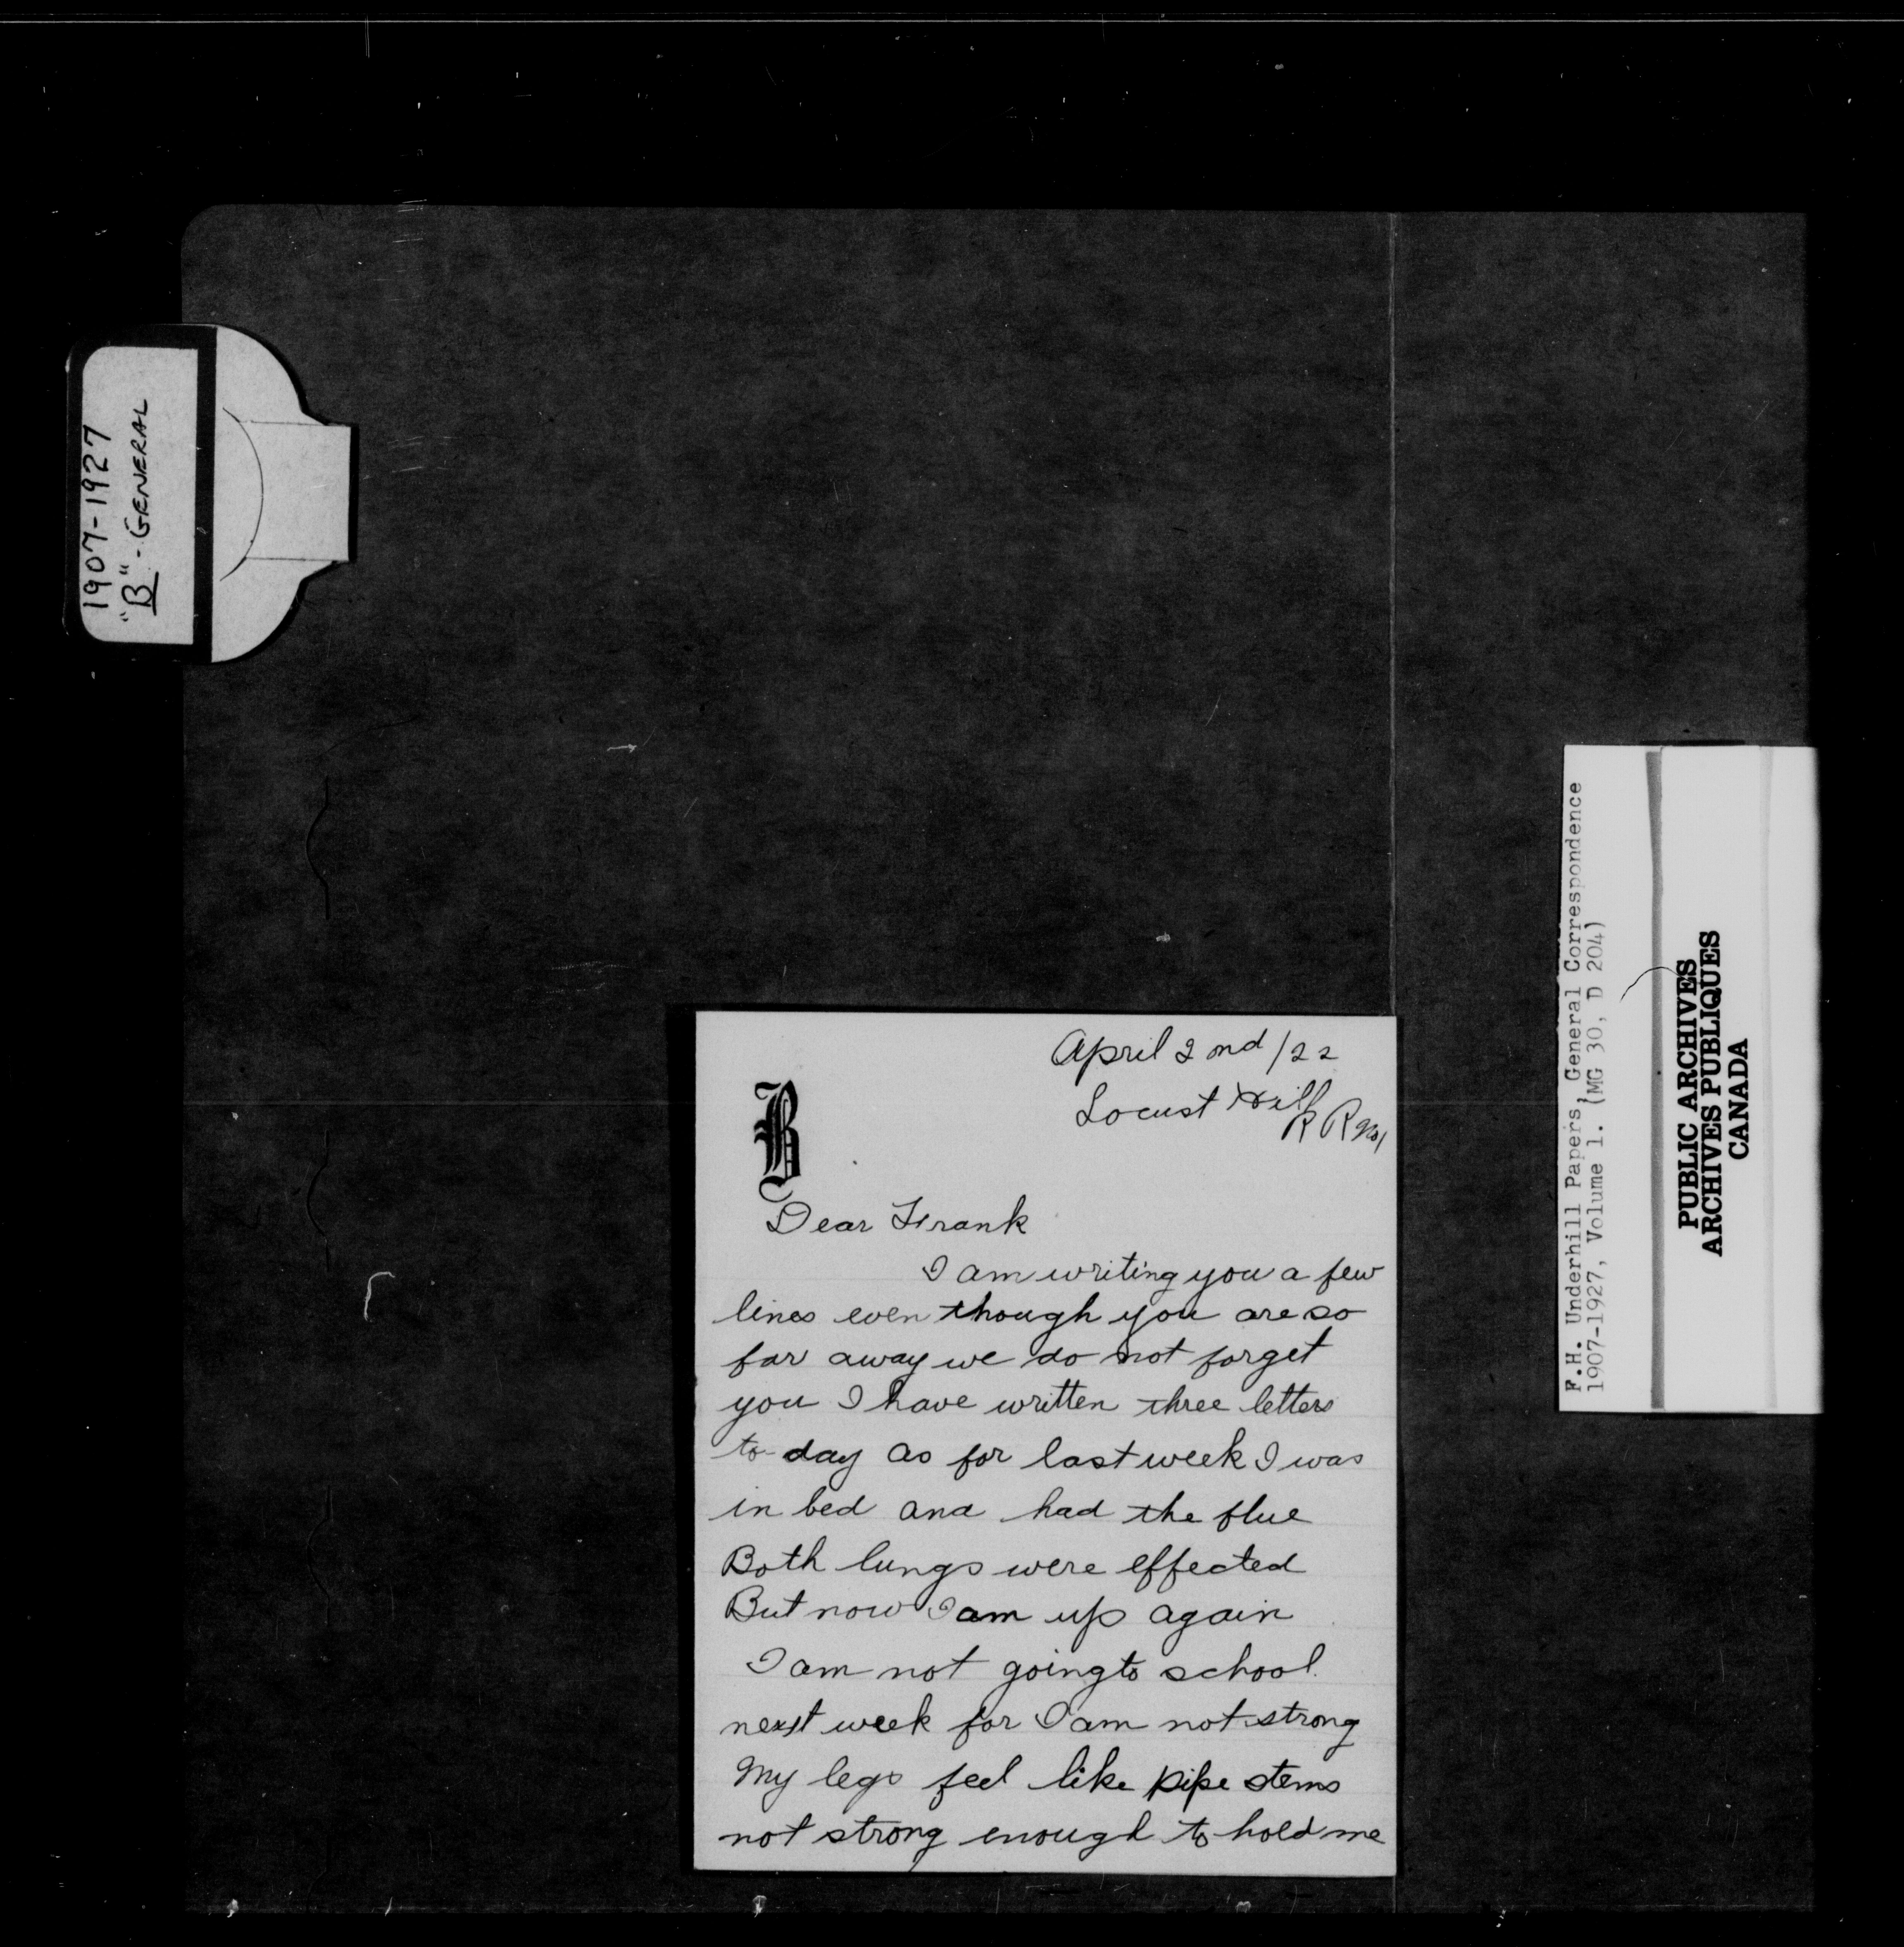 1907-1927
"B" - GENERAL
April 2nd /22
Locust Hill
R R No 1
B
Dear Frank
I am writing you a few
lines even though you are so
far away we do not forget
you I have written three letters
to-day as for last week I was
in bed and had the flue
Both lungs were effected
But now I am up again
I am not going to school.
next week for I am not strong
My legs feel like pipe stems
not strong enough to hold me
F.H. Underhill Papers, General Correspondence
1907-1927, Volume 1. (MG 30, D 204)
PUBLIC ARCHIVES
ARCHIVES PUBLIQUES
CANADA